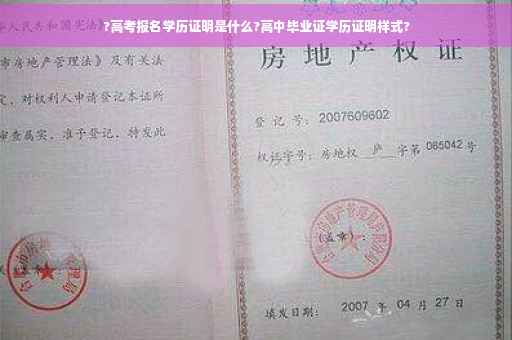 ?高考报名学历证明是什么?高中毕业证学历证明样式?
人民共和国宪法》
市房地产管理法》及有关法
定，对权利人申请登记本证所
审查属实，准予登记，特发此
房地产权证
登记号：2007609602
权证字号：房地权 庐 字第 085042 号
(盖章)：
填发日期： 2007 年 04 月 27 日